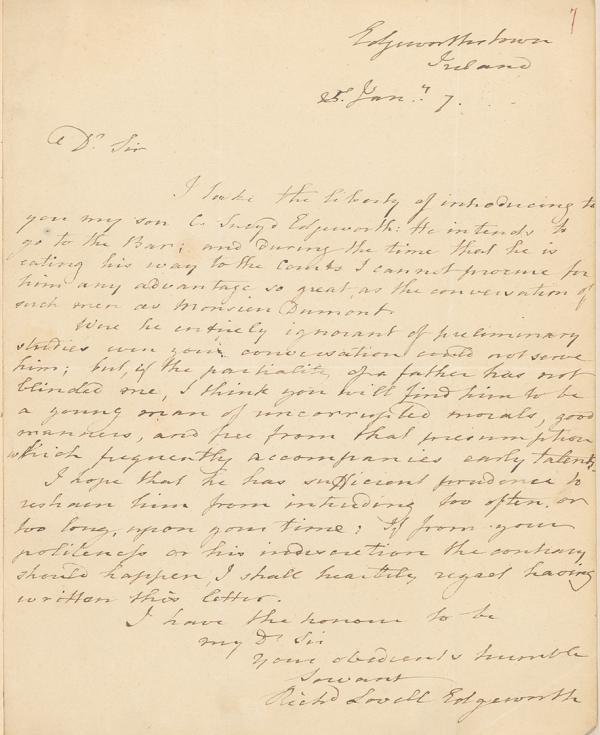 7
Edgeworthstown
Ireland
25. Jan.y 7.
Dr. Sir
I take the liberty of introducing to
you my son C. Sneyd Edgeworth: He intends to
go to the Bar; and during the time that he is
eating his way to the Courts I cannot procure for
him any advantage so great, as the conversation of
such men as Monsieur Dumont.
Were he entirely ignorant of preliminary
studies even your conversation could not serve
him; but, if the partiality of a father has not
blinded me, I think you will find him to be
a young man of uncorrupted morals, good
manners, and free from that presumption
which frequently accompanies early talents.
I hope that he has sufficient prudence to
restrain him from intruding too often or
too long, upon your time; If from your
politeness or his indiscretion the contrary
should happen, I shall heartily regret having
written this letter.
I have the honour to be
my Dr. Sir
Your obedient & humble
Servant
Richd Lovell Edgeworth